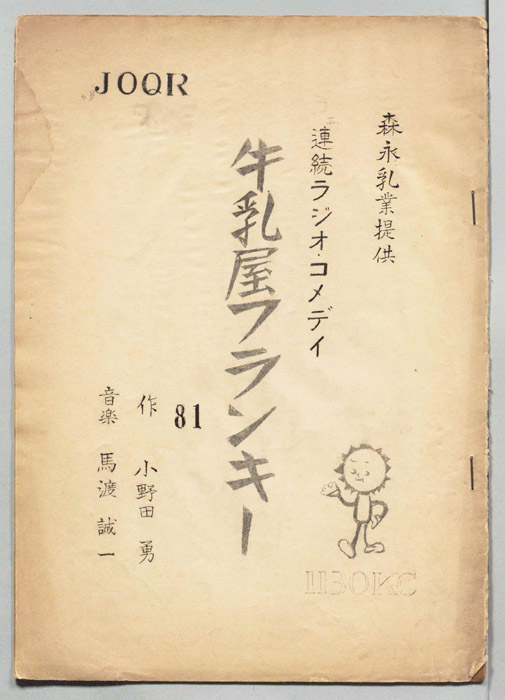 JOQR
森永乳業提供
連続ラジオ・コメデイ
牛乳屋フランキー
81
作 小野田 勇
音楽 馬渡 誠一
1130KC